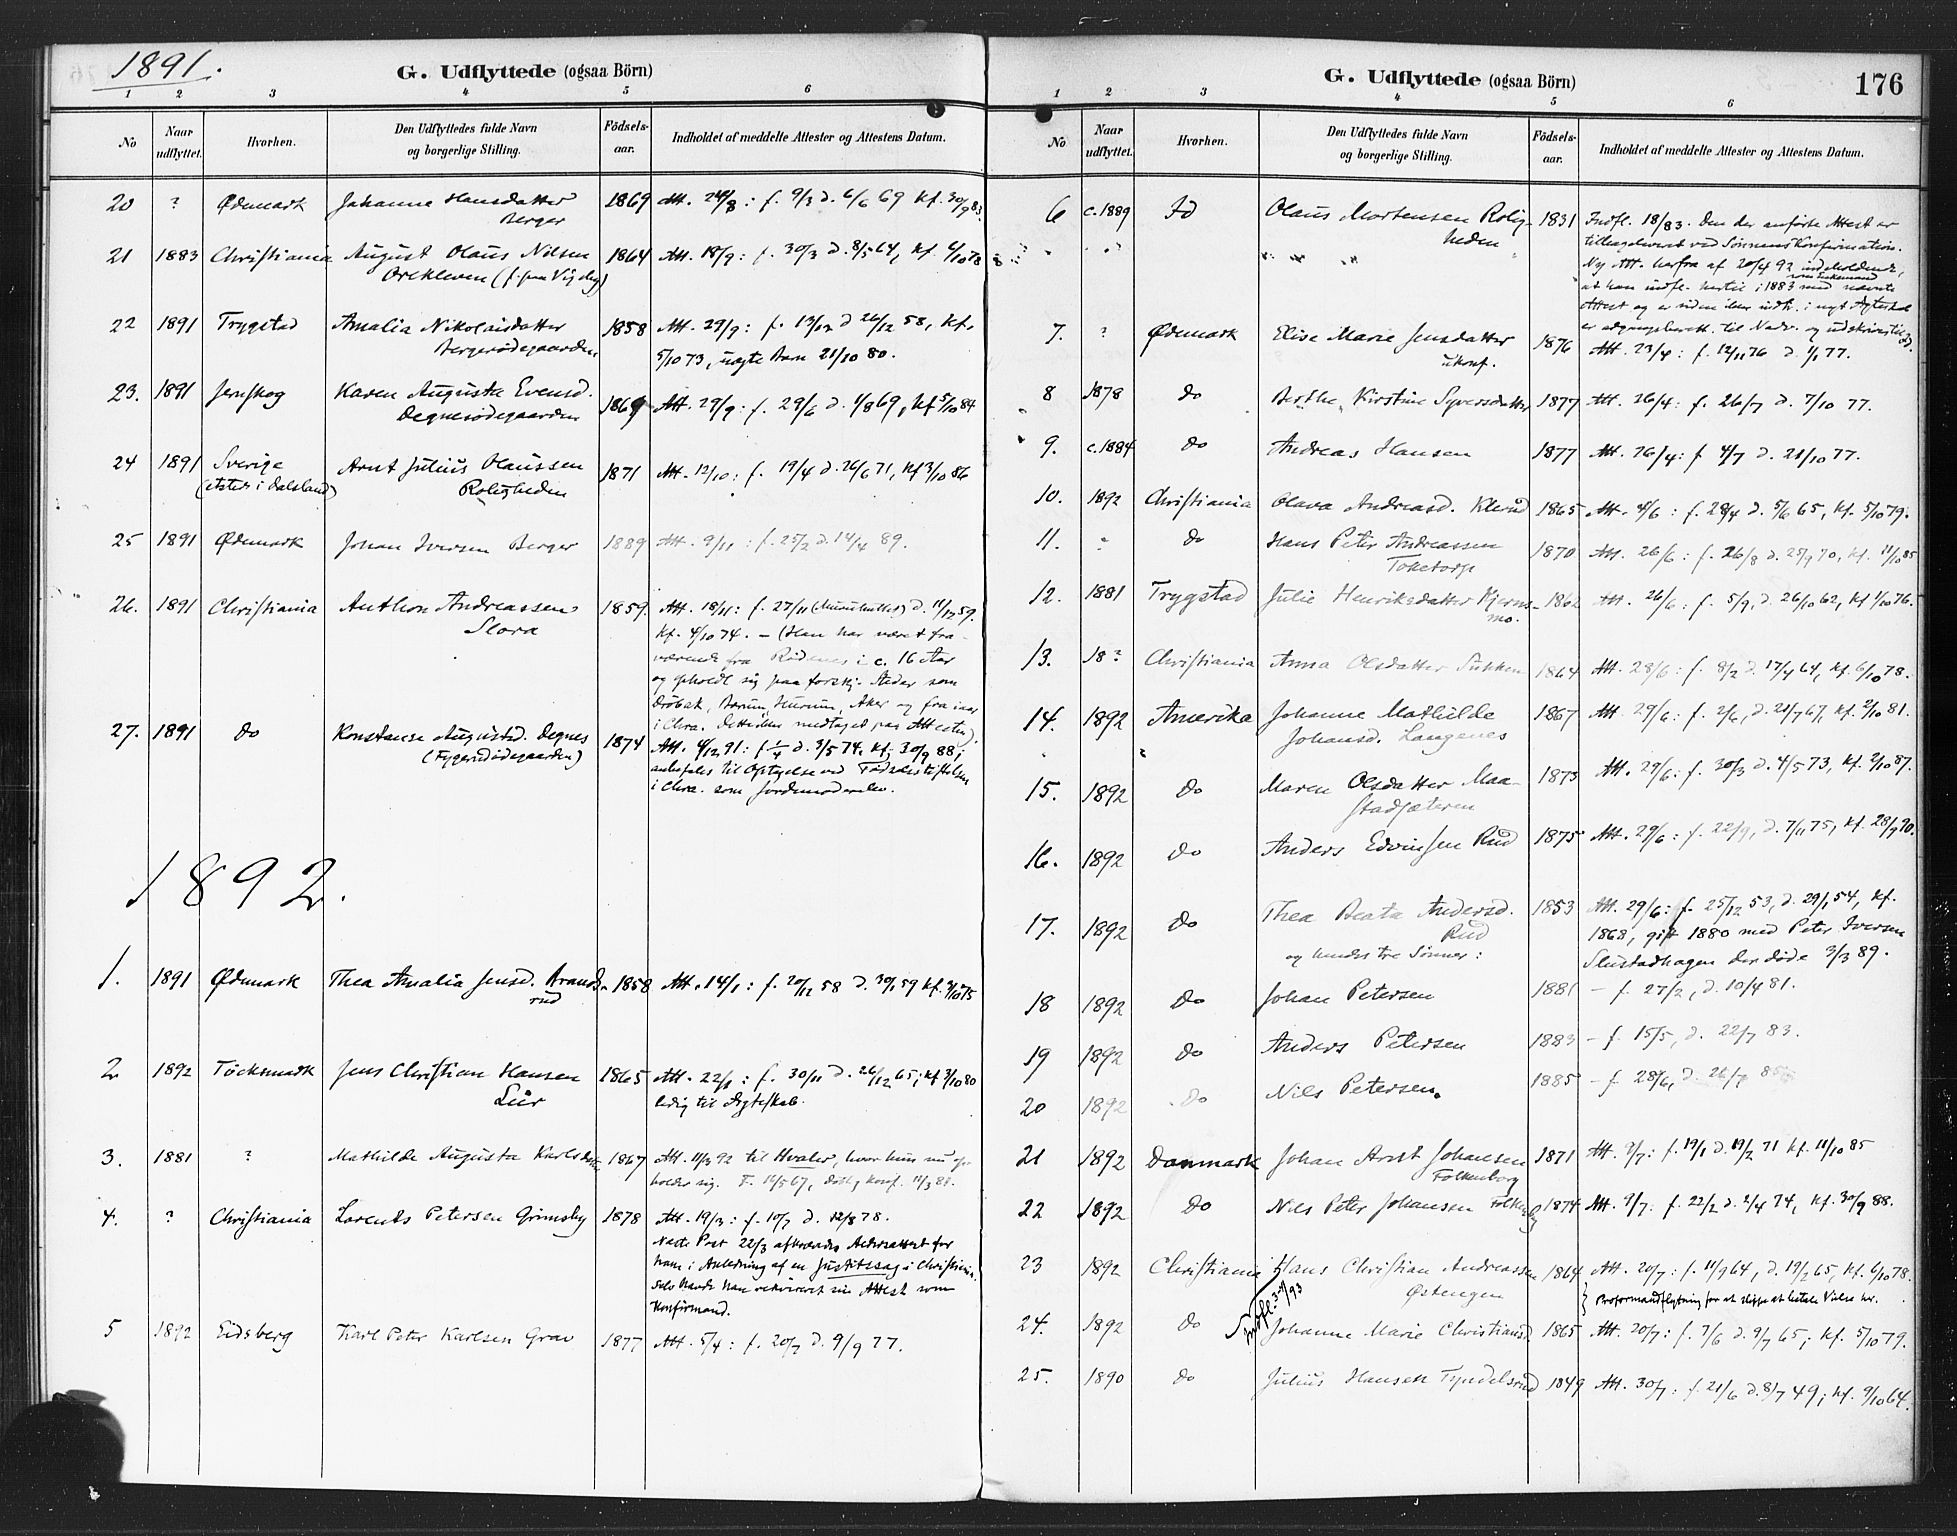 1891.
G. Udflyttede (ogsaa Börn)
1 2 3 4 5 6
No Naar udflyttet. Hvorhen. Den Udflyttedes fulde Navn og borgerlige Stilling. Födsels-aar. Indholdet af meddelte Attester og Attestens Datum.
20 ? Ødemark Johanne Hansdatter 1869 Att. 24/8: f. 9/3 d. 6/6 69 kf. 30/9 83.
Berger
21 1883 Christiania August Olaus Nilsen 1864 Att. 18/9: f. 30/3 d. 8/5 64, kf. 6/10 78
22 1891 Trygstad Amalia Nikolaisdatter 1858 Att. 29/9: f. 13/12 d 26/12 58, kf.
Bergerødegaarden 5/10 73, uægte Barn 21/10 80.
23. 1891 Jenskog Karen Auguste Evensd. 1869 Att. 29/9: f. 29/6 d. 1/8 69, kf 5/10 84
Degnerødegaarden
24 1891 Sverige Arnt Julius Olaussen 1871 Att. 12/10: f. 19/4 d. 26/6 71, kf 3/10 86
(etsted i Dalsland) Roligheden
25 1891 Ødemark Johan Iversen Berger 1889 Att. 9/11: f. 25/2 d. 14/4 89.
26. 1891 Christiania Anthon Andreassen 1859. Att. 18/11: f. 27/11 d. 11/12 59.
Slora kf. 4/10 74. – (Han har været fra-
værende fra Rødenes i c. 16 Aar
og opholdt sig paa forskj. Steder som
Drøbak, Bærum, Hurum, Aker og fra iaar
i Chra. Dette blev medtaget paa Attesten).
27. 1891 Do Konstanse Augustsd. Degnes 1874 Att. 4/12 91: f. 1/4 d. 3/5 74, kf. 30/9 88;
anbefales til Optagelse ved Fødselsstiftelsen
i Chra. som Jordemoderelev.
1892.
1. 1891 Ødemark Thea Amalia Jensd. 1858 Att. 14/1: f. 20/12 58 d. 30/1 59 kf. 3/10 75
rud
2 1892 Töcksmark Jens Christian Hansen 1865 Att. 22/1: f. 30/11 d. 26/12 65; kf 3/10 80
Lür ledig til Ægteskab.
3. 1881 ? Mathilde Augusta Karlsdatter 1867 Att. 11/3 92 til Hvaler, hvor hun nu op-
holder sig.
4. ? Christiania Lorents Petersen Grimsby 1878 Att. 19/3: f. 10/7 d. 12/8 78.
Næste Post 22/3 afkrævdes Aldersattest for
ham i Anledning af en Justitssag i Christiania.
Selv havde han rekvireret sin Attest som
Konfirmand.
5 1892 Eidsberg Karl Peter Karlsen Grav 1877 Att. 5/4: f. 20/7 d. 9/9 77.
G. Udflyttede (ogsaa Börn) 176
1 2 3 4 5 6
No Naar udflyttet. Hvorhen. Den Udflyttedes fulde Navn og borgerlige Stilling. Födsels-aar. Indholdet af meddelte Attester og Attestens Datum.
6 c. 1889 Id Olaus Mortensen Rolig- 1831 Indfl. 18/83. Den der anførte Attest er
heden tilbageleveret ved Sønnens Konfirmation.
" " " " " Ny Att. herfra af 20/4 92 indeholdende,
at han indfl. hertil i 1883 som Enkemand med nævnte
Attest og er siden ikke indtr. i nyt Ægteskab
er adgangsberett. til Nadv. og udskrives til Id.
7. ? Ødemark Elise Marie Jensdatter 1876 Att. 23/4: f. 12/11 76 d. 1/1 77.
ukonf.
8 1878 Do Berthe Kirstine Syversdatter 1877 Att. 26/4: f. 26/7 d. 7/10 77.
9. c. 1884 Do Andreas Hansen 1877 Att. 26/4: f 4/7 d. 21/10 77.
10. 1892 Christiania Olava Andreasd. Klerud 1865 Att. 4/6: f. 28/4 d. 5/6 65, kf. 5/10 79.
11. ? Do Hans Peter Andreassen 1870 Att. 26/6: f. 26/8 d. 25/9 70, kf. 11/10 85
Toketorp
12. 1881 Trygstad Julie Henriksdatter Kjerns- 1862 Att. 26/6: f. 5/9, d. 26/10 62, kf 1/10 76.
mo.
13. 18? Christiania Anna Olsdatter 1864 Att. 28/6: f. 8/2 d. 17/4 64, kf. 6/10 78.
14. 1892 Amerika Johanne Mathilde 1867 Att. 29/6: f. 2/6, d. 21/7 67, kf. 2/10 81.
Johansd. Langenes
15. 1892 Do Maren Olsdatter Maa- 1873 Att. 29/6: f. 30/3 d. 4/5 73, kf. 2/10 87.
stadsæteren
16. 1892 Do Anders Edvinsen Rud 1875 Att. 29/6: f. 22/9, d. 7/11 75, kf. 28/9 90.
17. 1892 Do Thea Beata Andersd. 1853 Att. 29/6: f. 25/12 53, d. 29/1 54, kf.
Rud 1868, gift 1880 med Peter Iversen
og hendes tre Sønner: Slustadhagen der døde 3/3 89.
18 1892 Do Johan Petersen 1881 – f. 27/2, d. 10/4 81.
19 1892 Do Anders Petersen 1883 – f. 15/5, d. 22/7 83.
20 1892 Do Nils Petersen. 1885 – f. 28/6, d. 26/7 85
21 1892 Danmark Johan Arnt Johansen 1871 Att. 9/7: f. 19/1 d. 19/2 71 kf. 11/10 85
Folkenborg
22 1892 Do Nils Peter Johansen Folkenborg 1874 Att. 9/7: f. 22/2 d. 2/4 74, kf. 30/9 88.
23 1892 Christiania Hans Christian Andreassen 1864 Att. 20/7: f. 11/9 64, d. 19/2 65, kf. 6/10 78.
Østengen Proformaudflytning for at slippe at betale Vielse her.
Indfl. 93
24. 1892 Do Johanne Marie Christiansd 1865 Att. 20/7: f. 7/6 d. 9/7 65; kf. 5/10 79.
25. 1890 Do Julius Hansen Tyndelsrud 1849 Att. 30/7: f. 21/6 d. 8/7 49; kf. 9/10 64.